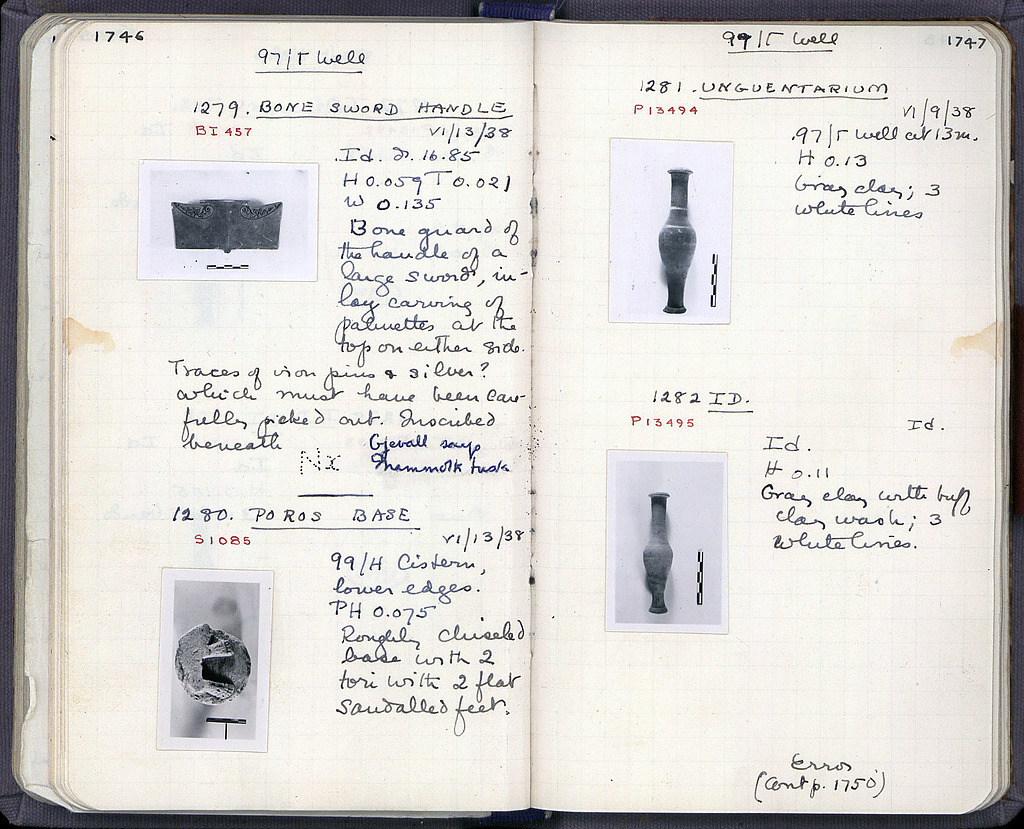 1746
97/Γ Well
1279. BONE SWORD HANDLE
BI 457
VI/13/38
Id. 16.85
H 0.059 T 0.021
W 0.135
Bone guard of
the handle of a
large sword, in-
lay carving of
palmettes at the
top on either side.
Traces of iron pins & silver?
which must have been care-
fully picked out. Inscribed
beneath
Gjevall says
mammoth tusk
1280. POROS BASE
S 1085
VI/13/38
99/H Cistern,
lower edges.
PH 0.075
Roughly chiseled
base with 2
tori with 2 flat
sandalled feet.
99/Γ Well
1747
1281. UNGUENTARIUM
P 13494
VI/9/38
97/Γ well at 13m.
H 0.13
Gray clay; 3
white lines
1282 ID.
P 13495
Id.
Id.
H 0.11
Gray clay with buff
clay wash; 3
white lines.
Error
(Cont p. 1750)